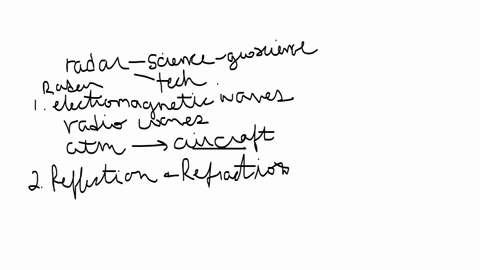 radar - science - geoscience
- tech.
1. electromagnetic waves
radio waves
atm → aircraft
2. Reflection & Refraction